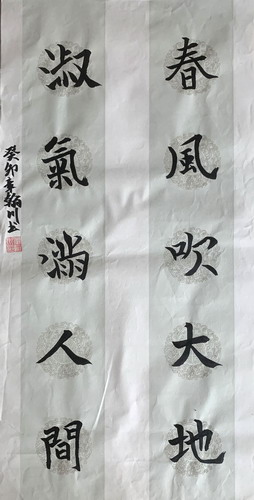 春風吹大地
淑氣滿人間
癸卯春翰川書